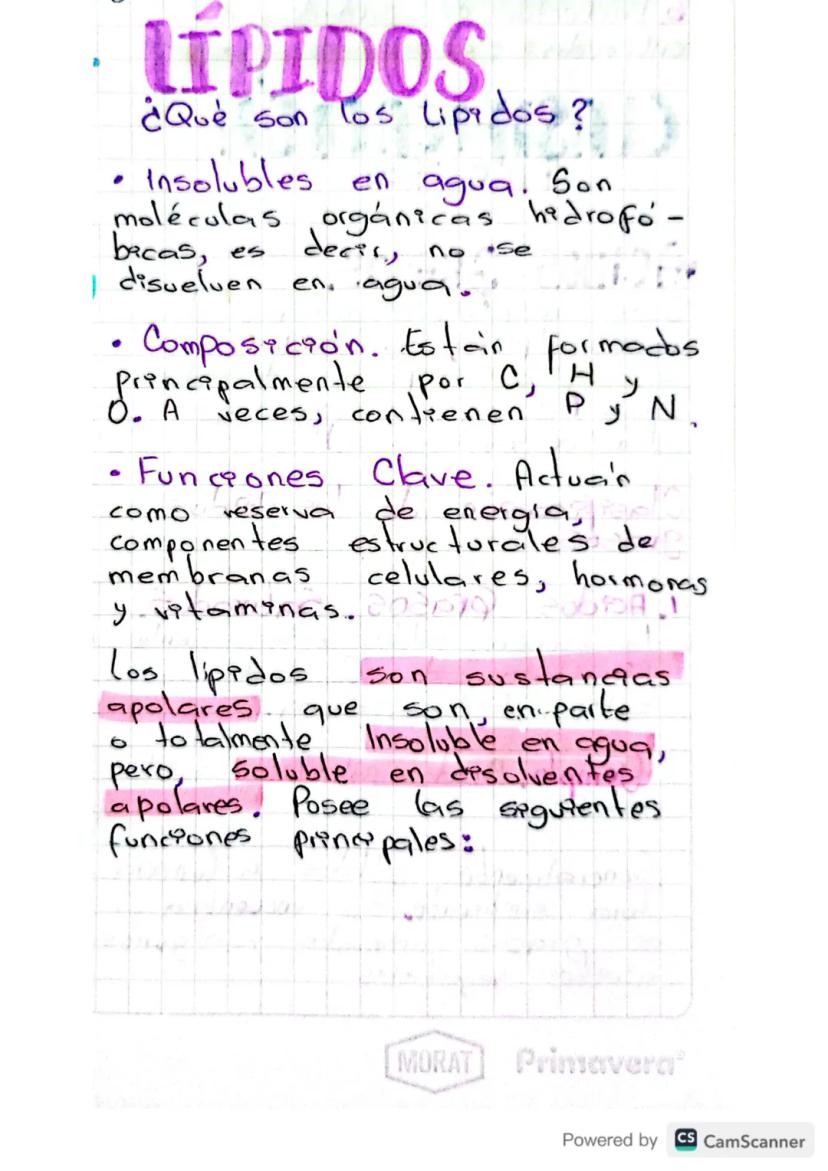 LÍPIDOS
¿Qué son los Lipidos?
• Insolubles en agua. Son
moléculas orgánicas hidrofó-
bicas, es decir, no se
disuelven en agua.
• Composición. Están formados
principalmente por C, H y
O. A veces, contienen P y N.
• Funciones Clave. Actuán
como reserva de energía,
componentes estructurales de
membranas celulares, hormonas
y vitaminas.
Los lípidos son sustancias
apolares que son, en parte
o totalmente Insoluble en agua,
pero, soluble en disolventes
apolares. Posee las siguientes
funciones principales:
MORAT Primavera
Powered by CS CamScanner